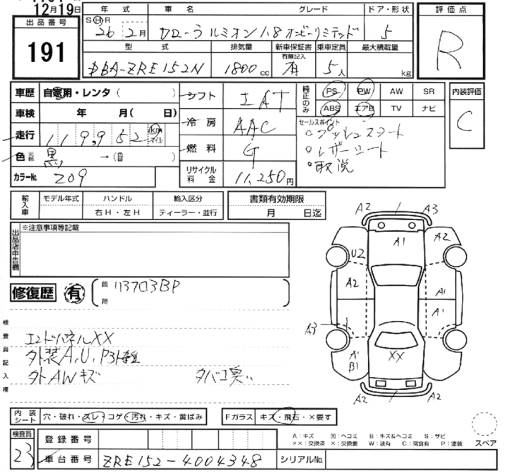 12月19日
出品番号
191
年式 車名 グレード ドア・形状
SHR 26年2月 カローラルミオン 1.8 オンビーリミテッド 5
型式 排気量 新車保証書 有無記入 乗車定員 最大積載量
DBA-ZRE152N 1800cc 有 5人 kg
評価点
R
車歴 自家用・レンタ( )
車検 年 月( )
走行 119,952 km マイル
色 元色 黒 →( )
カラーNo. 209
シフト IAT
冷房 AAC
燃料 G
リサイクル料金 11,250円
純正のみ PS PW AW SR
ABS エアB TV ナビ
セールスポイント
・プッシュスタート
・レザーシート
・取説
内装評価
C
輸入車 モデル年式 ハンドル 輸入区分
右H・左H ディーラー・並行
書類有効期限
月 日迄
出品店申告欄
※注意事項等記載
修復歴 有
箇所 113703BP
検査員記入欄
エンドパネルXX
外装A,U,P3ト軽
外AWキズ タバコ臭い
A2 A3
A1
U2 A2
A2 A1
A3
A1 B1
XX
A2
A2 A2
内装シート 穴・破れ・スレ・コゲ・汚れ・キズ・黄ばみ
Fガラス キズ・飛石・×要す
A：キズ U：ヘコミ B：キズ&ヘコミ S：サビ
XX：交換済 X：要交換 W：波有 C：腐食有 P：塗装
スペア
検査員
23
登録番号
車台番号 ZRE152-4004348 シリアルNo.